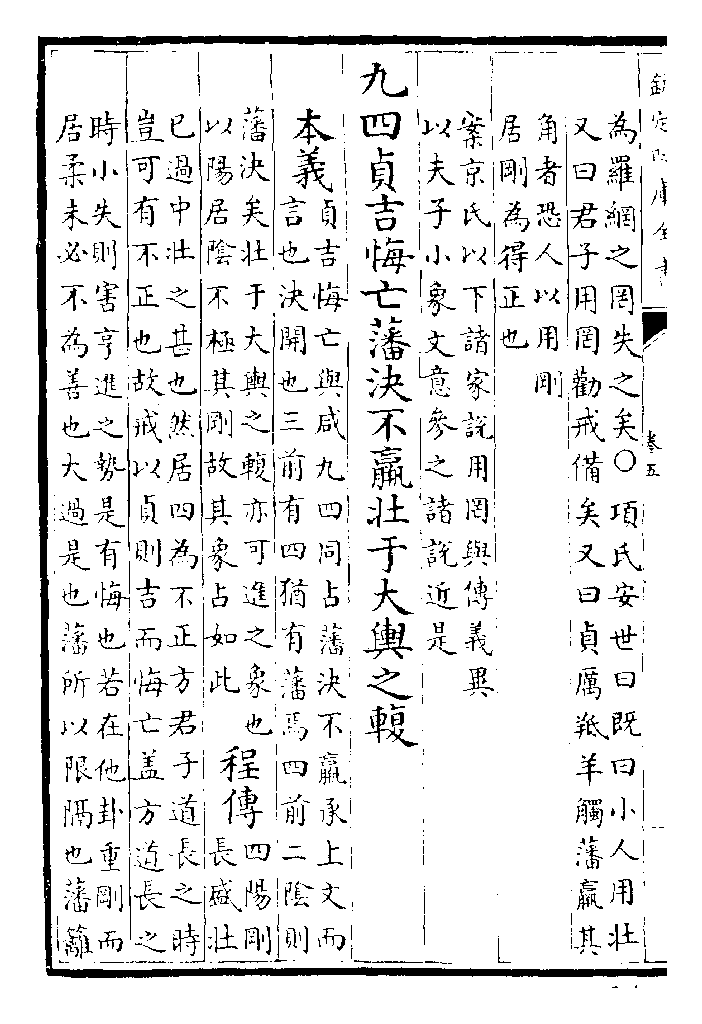 欽定四庫全書
卷五
為羅網之罔失之矣○項氏安世曰既曰小人用壯
又曰君子用罔勸戒備矣又曰貞厲羝羊觸藩羸其
角者恐人以用剛
居剛為得正也
案京氏以下諸家說用罔與傳義異
以夫子小象文意參之諸說近是
九四貞吉悔亡藩決不羸壯于大輿之輹
本義
貞吉悔亡與咸九四同占藩決不羸承上文而
言也決開也三前有四猶有藩焉四前二陰則
藩決矣壯于大輿之輹亦可進之象也
以陽居陰不極其剛故其象占如此
程傳
四陽剛
長盛壯
已過中壯之甚也然居四為不正方君子道長之時
豈可有不正也故戒以貞則吉而悔亡盖方道長之
時小失則害亨進之勢是有悔也若在他卦重剛而
居柔未必不為善也大過是也藩所以限隔也藩籬